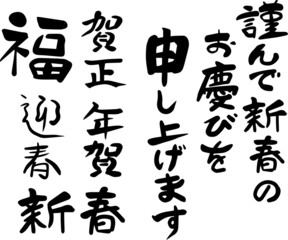 謹んで新春の
お慶びを
申し上げます
賀正 年賀春
福迎春新